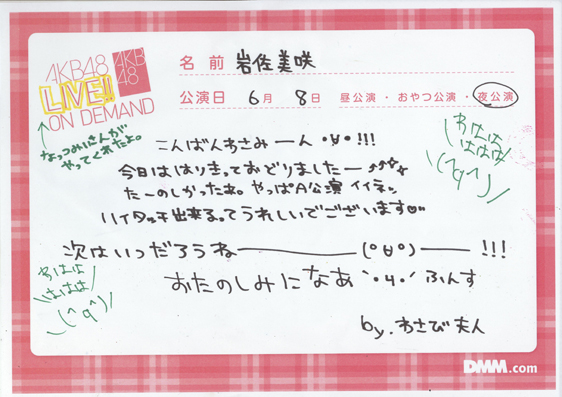 AKB48
LIVE!!
ON DEMAND
AKB
48
名前 岩佐美咲
公演日 6月 8日 昼公演・おやつ公演・夜公演
なっつみにさんが
やってくれたよ。
こんばんわさみーん ・∀・!!!
今日ははりきっておどりましたー
たーのしかったね。やっぱA公演イイネッ
ハイタッチ出来るってうれしいでございます♡♡
わはは
はははは
\(^q^)/
次はいつだろうね――――(°∀°)――!!!
わははは
はははは
\(^q^)/
おたのしみになあ`・ч・´ふんす
by.わさび夫人
DMM.com